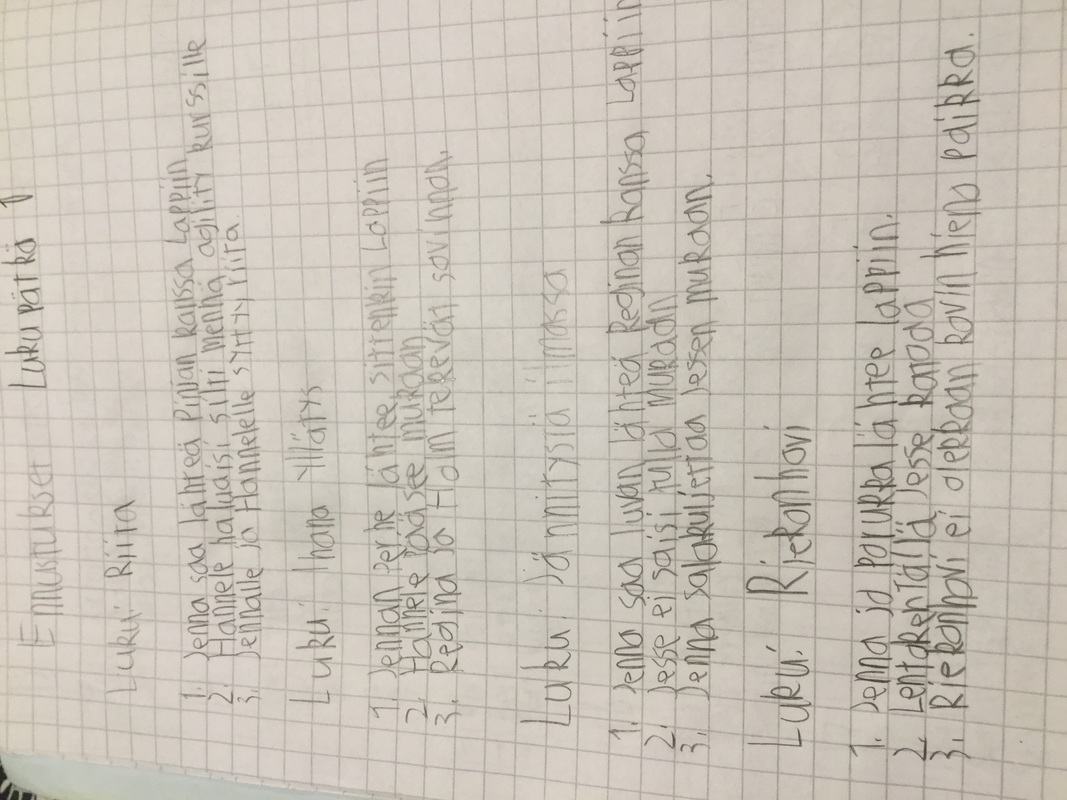 Ennustukset Luku pätkä 1
Luku: Riina
1. Jenna saa lähteä Pinjan kanssa Lappiin
2. Hannele haluaisi silti mennä agility kurssille
3. Jennalle ja Hannelelle syttyy riita.
Luku: Ihana yllätys
1. Jennan perhe lähtee sittenkin Lappiin
2. Hannele pääsee mukaan
3. Regina ja Holm tekevät sovinnon.
Luku: Jännitystä ilmassa
1. Jenna saa luvan lähteä Reginan kanssa Lappiin
2. Jesse ei saisi tulla mukaan
3. Jenna salakuljettaa Jessen mukaan.
Luku: Riekonhovi
1. Jenna ja porukka lähtee lappiin.
2. Lentokentällä Jesse katoaa
3. Riekonhovi ei olekkaan kovin hieno paikka.